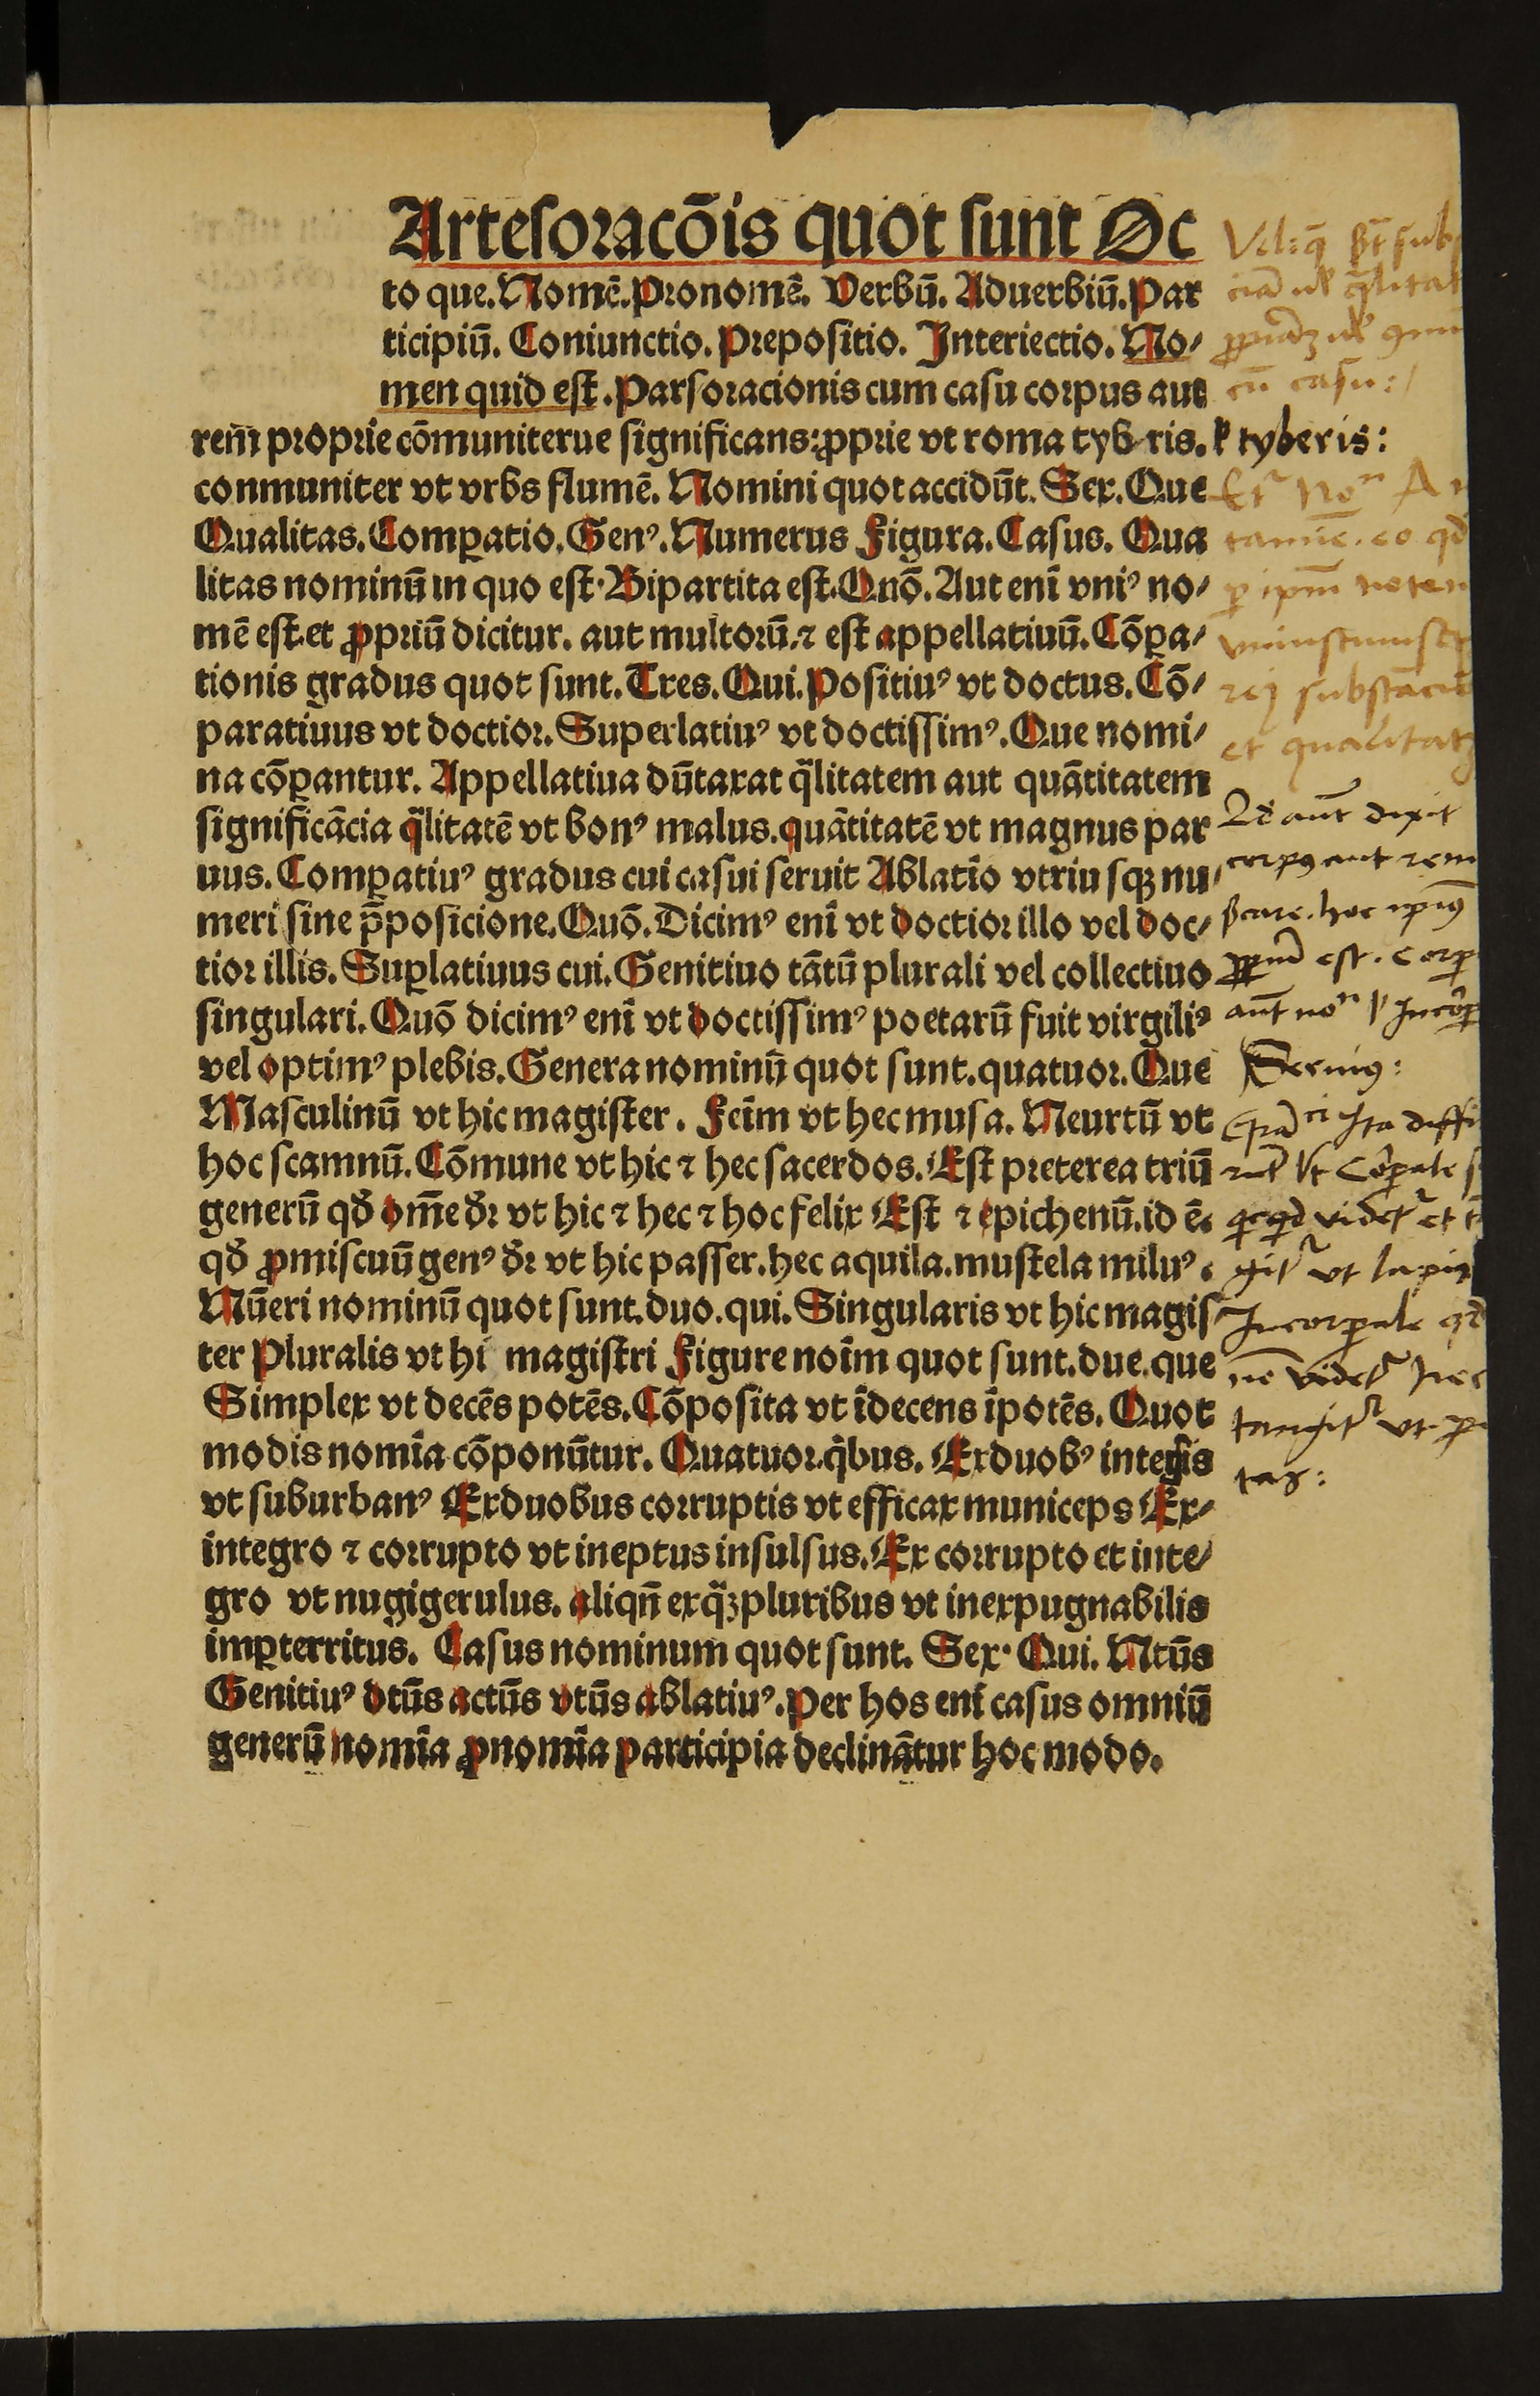 Artes oracōis quot sunt Oc
to que. Nomē. Pronomē. Verbū. Aduerbiū. Par
ticipiū. Coniunctio. Prepositio. Interiectio. No/
men quid est. Pars oracionis cum casu corpus aut
rem̄ proprie cōmuniterue significans: ꝓprie vt roma tyb ris.
conmuniter vt vrbs flumē. Nomini quot accidūt. Sex. Que
Qualitas. Comꝑatio. Genꝰ. Numerus Figura. Casus. Qua
litas nominū in quo est. Bipartita est. Quō. Aut enī vniꝰ no/
mē est. et ꝓpriū dicitur. aut multorū. ⁊ est appellatiuū. Cōꝑa/
tionis gradus quot sunt. Tres. Qui. Positiuꝰ vt doctus. Cō/
paratiuus vt doctior. Superlatiuꝰ vt doctissimꝰ. Que nomi/
na cōꝑantur. Appellatiua dūtaxat q̄litatem aut quātitatem
significācia q̄litatē vt bonꝰ malus. quātitatē vt magnus par
uus. Comꝑatiuꝰ gradus cui casui seruit Ablatīo vtriusqꝫ nu/
meri sine p̄posicione. Quō. Dicimꝰ enī vt doctior illo vel doc/
tior illis. Suꝑlatiuus cui. Genitiuo tātū plurali vel collectiuo
singulari. Quō dicimꝰ enī vt doctissimꝰ poetarū fuit virgiliꝰ
vel optimꝰ plebis. Genera nominū quot sunt. quatuor. Que
Masculinū vt hic magister. Feīm vt hec musa. Neurtū vt
hoc scamnū. Cōmune vt hic ⁊ hec sacerdos. Est preterea triū
generū qđ om̄e đr vt hic ⁊ hec ⁊ hoc felix Est ⁊ epichenū. id ē.
qđ ꝓmiscuū genꝰ đr vt hic passer. hec aquila. mustela miluꝰ.
Nūeri nominū quot sunt. duo. qui. Singularis vt hic magis
ter Pluralis vt hi magistri Figure noīm quot sunt. due. que
Simplex vt decēs potēs. Cōposita vt īdecens īpotēs. Quot
modis nomīa cōponūtur. Quatuor. qͥbus. Ex duobꝰ integͥs
vt suburbanꝰ Ex duobus corruptis vt efficax municeps Ex/
integro ⁊ corrupto vt ineptus insulsus. Ex corrupto et inte/
gro vt nugigerulus. aliqn̄ ex q̄ꝫ pluribus vt inexpugnabilis
imꝑterritus. Casus nominum quot sunt. Sex. Qui. Ntūs
Genitiuꝰ dtūs actūs vtūs ablatiuꝰ. Per hos eni casus omniū
generū nomīa ꝓnomīa participia declināntur hoc modo.
cū casu:
tyberis:
ꝑ ipm̄
reį substācia
et qualitatꝫ
aut̄ dixit
corpꝰ aut rem
est. Corꝑ
Seruiꝰ:
ita diffi
qͥcqͥd videtͬ et
vt lapis
Incorꝑale qđ
nō videtͬ nec
tangitͬ vt
tas: